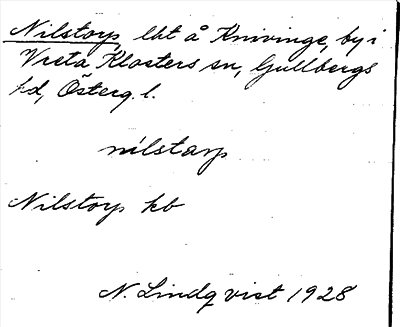 Nilstorp, lht å Knivinge, by i
Vreta Klosters sn, Gullbergs
hd, Österg. l.
nilstarp
Nilstorp kb
N. Lindqvist 1928